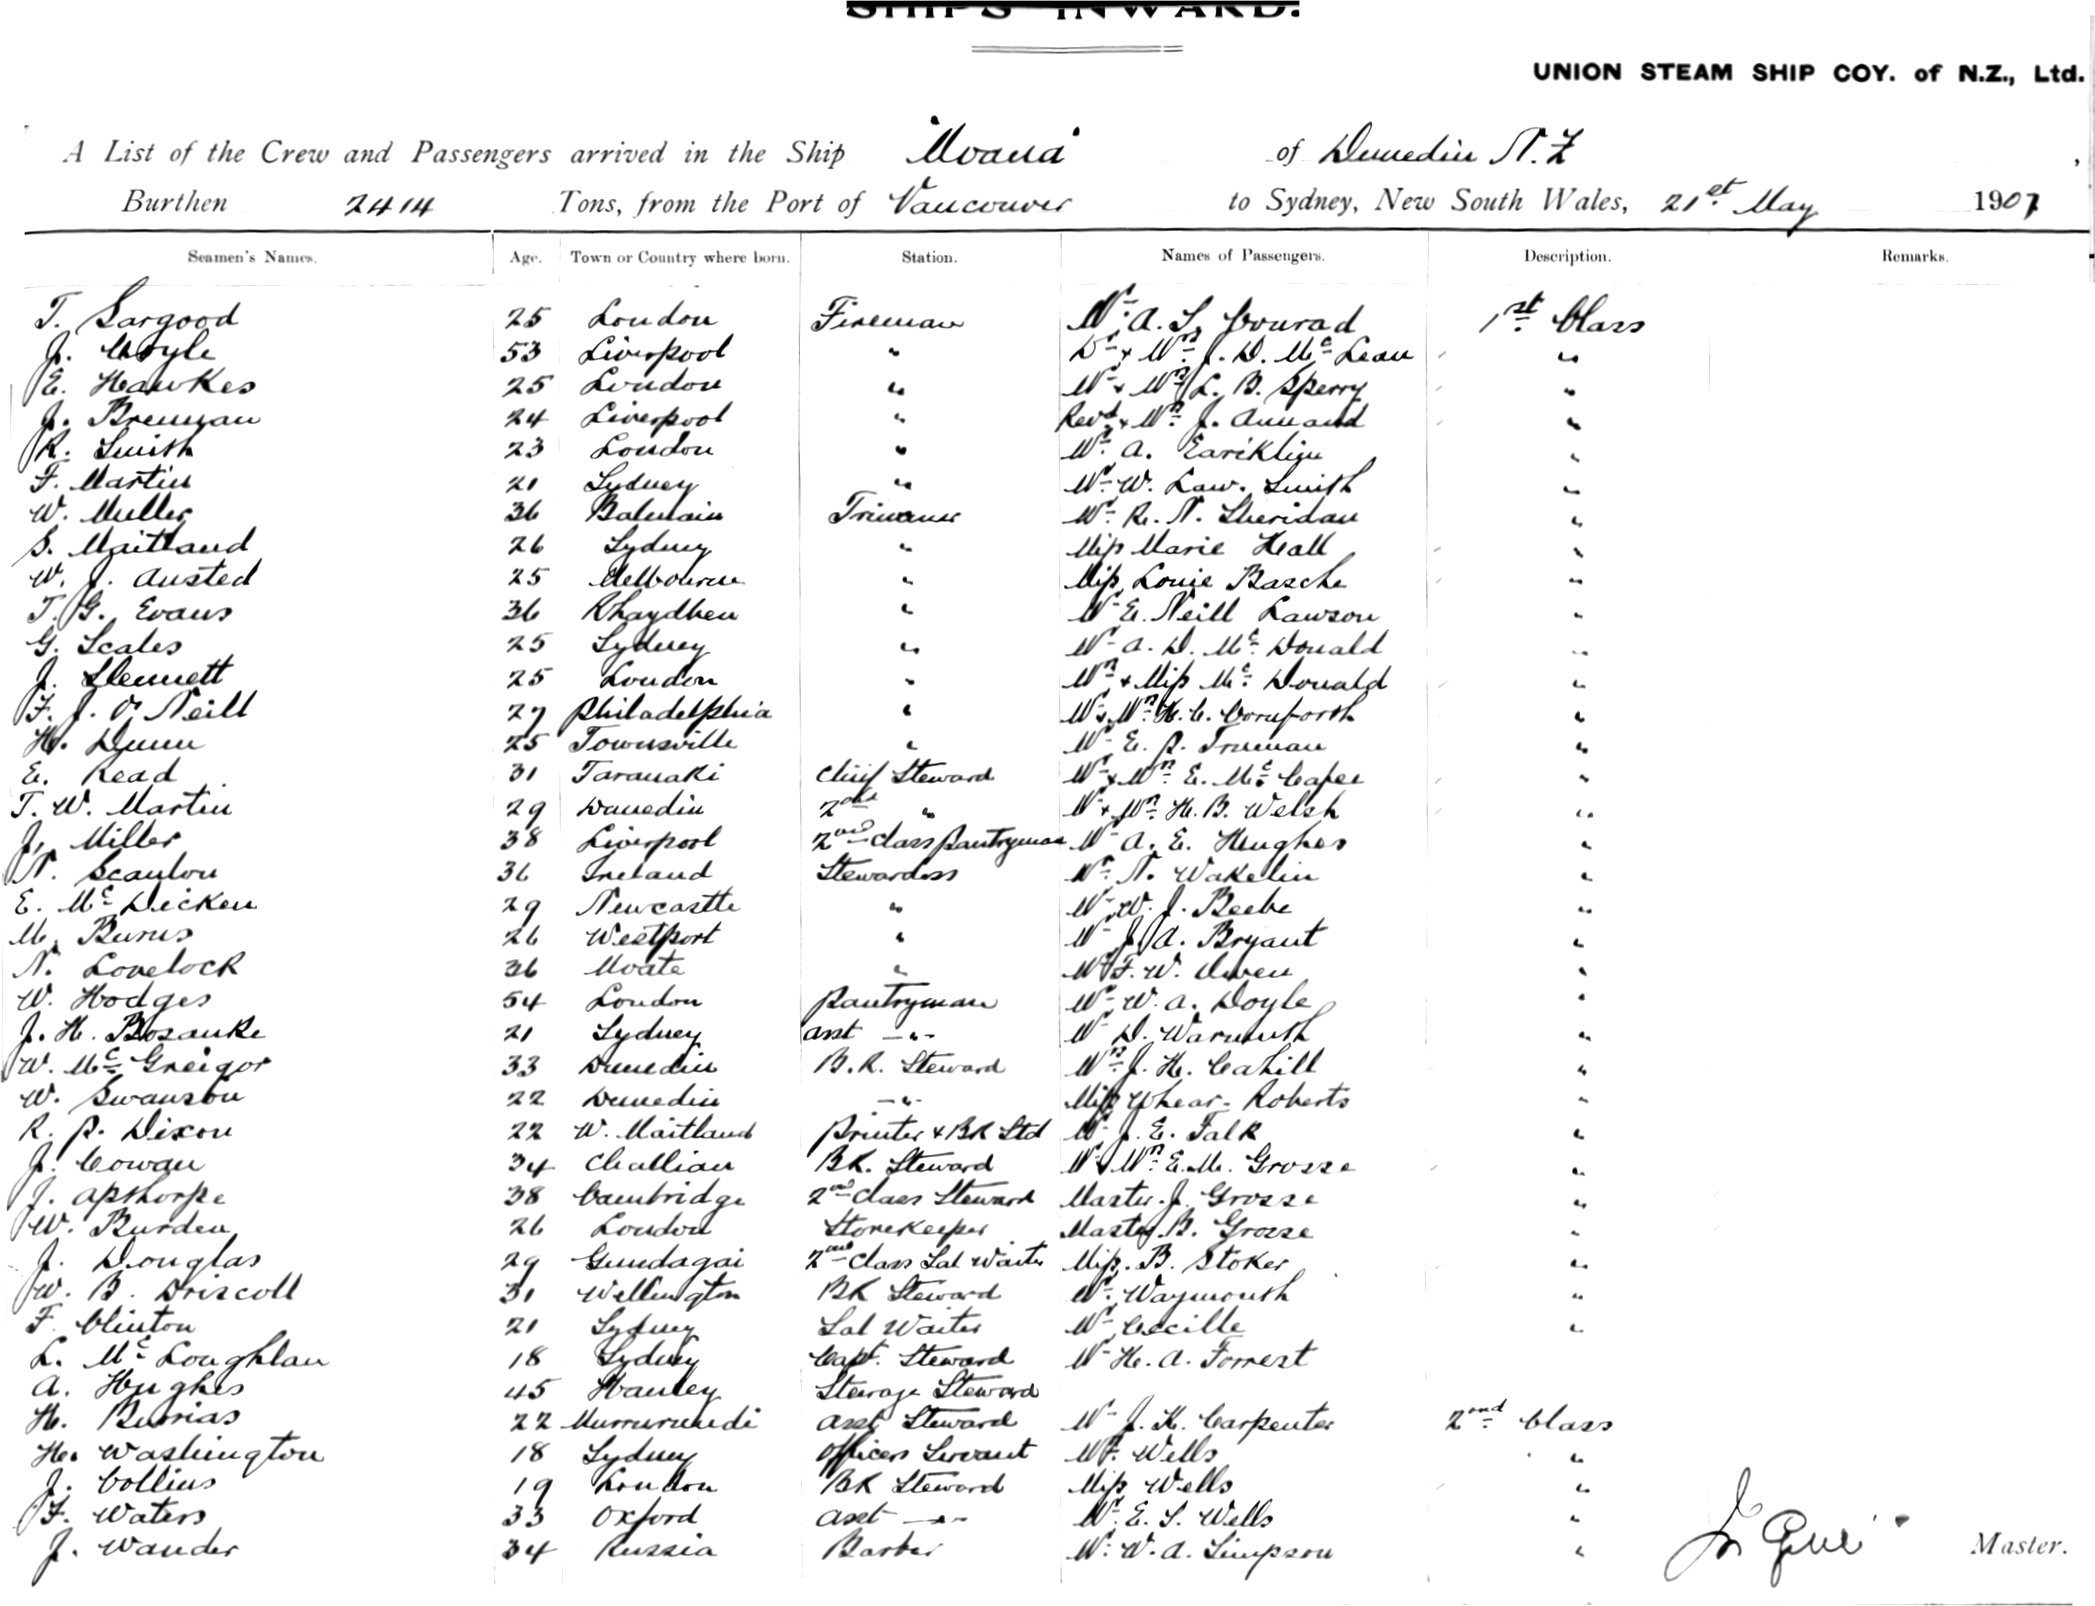 SHIPS INWARD.
UNION STEAM SHIP COY. of N.Z., Ltd.
A List of the Crew and Passengers arrived in the Ship "Moana" of Dunedin N.Z,
Burthen 2414 Tons, from the Port of Vancouver to Sydney, New South Wales, 21st May 1907
Seamen's Names. Age. Town or Country where born. Station. Names of Passengers. Description. Remarks.
T. Sargood 25 London Fireman Mr A. S. Conrad 1st Class
J. Coyle 53 Liverpool " Dr & Mrs J. D. McLean "
E. Hawkes 25 London " Mr & Mrs L. B. Sperry "
J. Brennan 24 Liverpool " Revd & Mrs J. Annand "
R. Smith 23 London " Mr A. "
F. Martin 21 Sydney " Mr W. Law. Smith "
W. Muller 36 Balmain Trimmer Mr R. N. Sheridan "
S. Maitland 26 Sydney " Miss Marie Hall "
W. J. Austed 25 Melbourne " Miss Louie Basche "
T. G. Evans 36 " Mr E. Neill Lawson "
G. Scales 25 Sydney " Mr A. D. McDonald "
J. 25 London " Mrs & Miss McDonald "
F. J. O'Neill 27 Philadelphia " Mr & Mrs H. C. Cornforth "
H. Dunn 25 Townsville " Mr E. P. Trueman "
E. Read 31 Taranaki Chief Steward Mr & Mrs E. "
T. W. Martin 29 Dunedin 2nd " Mr & Mrs H. B. Welsh "
J. Miller 38 Liverpool 2nd Class Pantryman Mr A. E. Hughes "
N. Scanlon 36 Ireland Stewardess Mr N. Wakelin "
E. McDicken 29 Newcastle " Mr W. J. Beebe "
M. Burns 26 Westport " Mr J. A. Bryant "
N. Lovelock 36 Moate " Mr F. W. Owen "
W. Hodges 54 London Pantryman Mr W. A. Doyle "
J. H. Bosanke 21 Sydney asst -"- Mr D. Warmuth "
W. McGreigor 33 Dunedin B.R. Steward Mrs J. H. Cahill "
W. Swanson 22 Dunedin -"- Miss Roberts "
R. P. Dixon 22 W. Maitland Printer & BR Std Mr J. E. Falk "
J. Cowan 34 BR. Steward Mr & Mrs E. M. Grosse "
J. Apthorpe 38 Cambridge 2nd Class Steward Master J. Grosse "
W. Burden 26 London Storekeeper Master B. Grosse "
J. Douglas 29 Gundagai 2nd Class Sal Waiter Miss B. Stoker "
W. B. Driscoll 31 Wellington BR Steward Mr Waymouth "
F. Clinton 21 Sydney Sal Waiter Mr Cecille "
L. McLoughlan 18 Sydney Capt. Steward Mr H. A. Forrest
A. Hughes 45 Hanley Steerage Steward
H. Burrias 22 Murrurundi asst Steward Mr J. K. Carpenter 2nd Class
H. Washington 18 Sydney Officers Servant Mr Wells "
J. Collins 19 London BR Steward Miss Wells "
F. Waters 33 Oxford asst -"- Mr E. S. Wells "
J. Wander 34 Russia Barber Mr W. A. Simpson " Master.